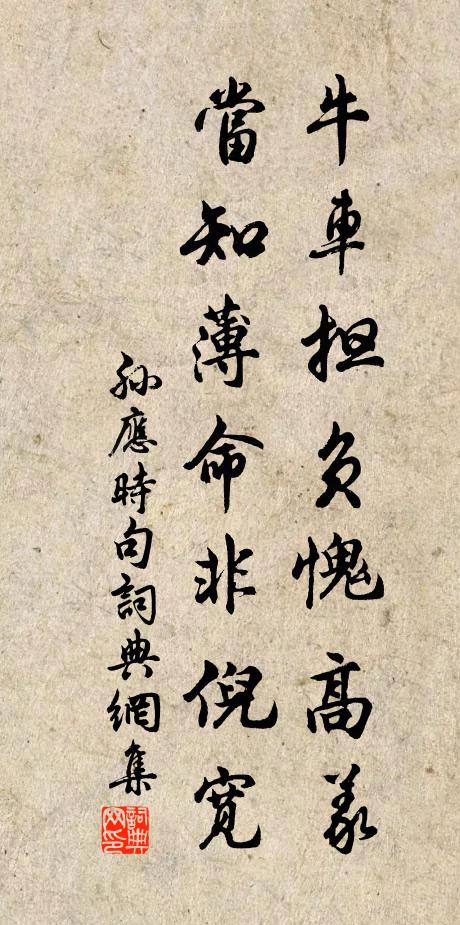 牛車担負愧高義
當知薄命非倪寬
孙應時句詞典網集
詞典網印